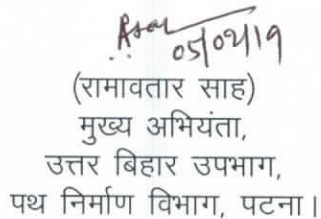 05/02/19
(रामावतार साह)
मुख्य अभियंता,
उत्तर बिहार उपभाग,
पथ निर्माण विभाग, पटना।